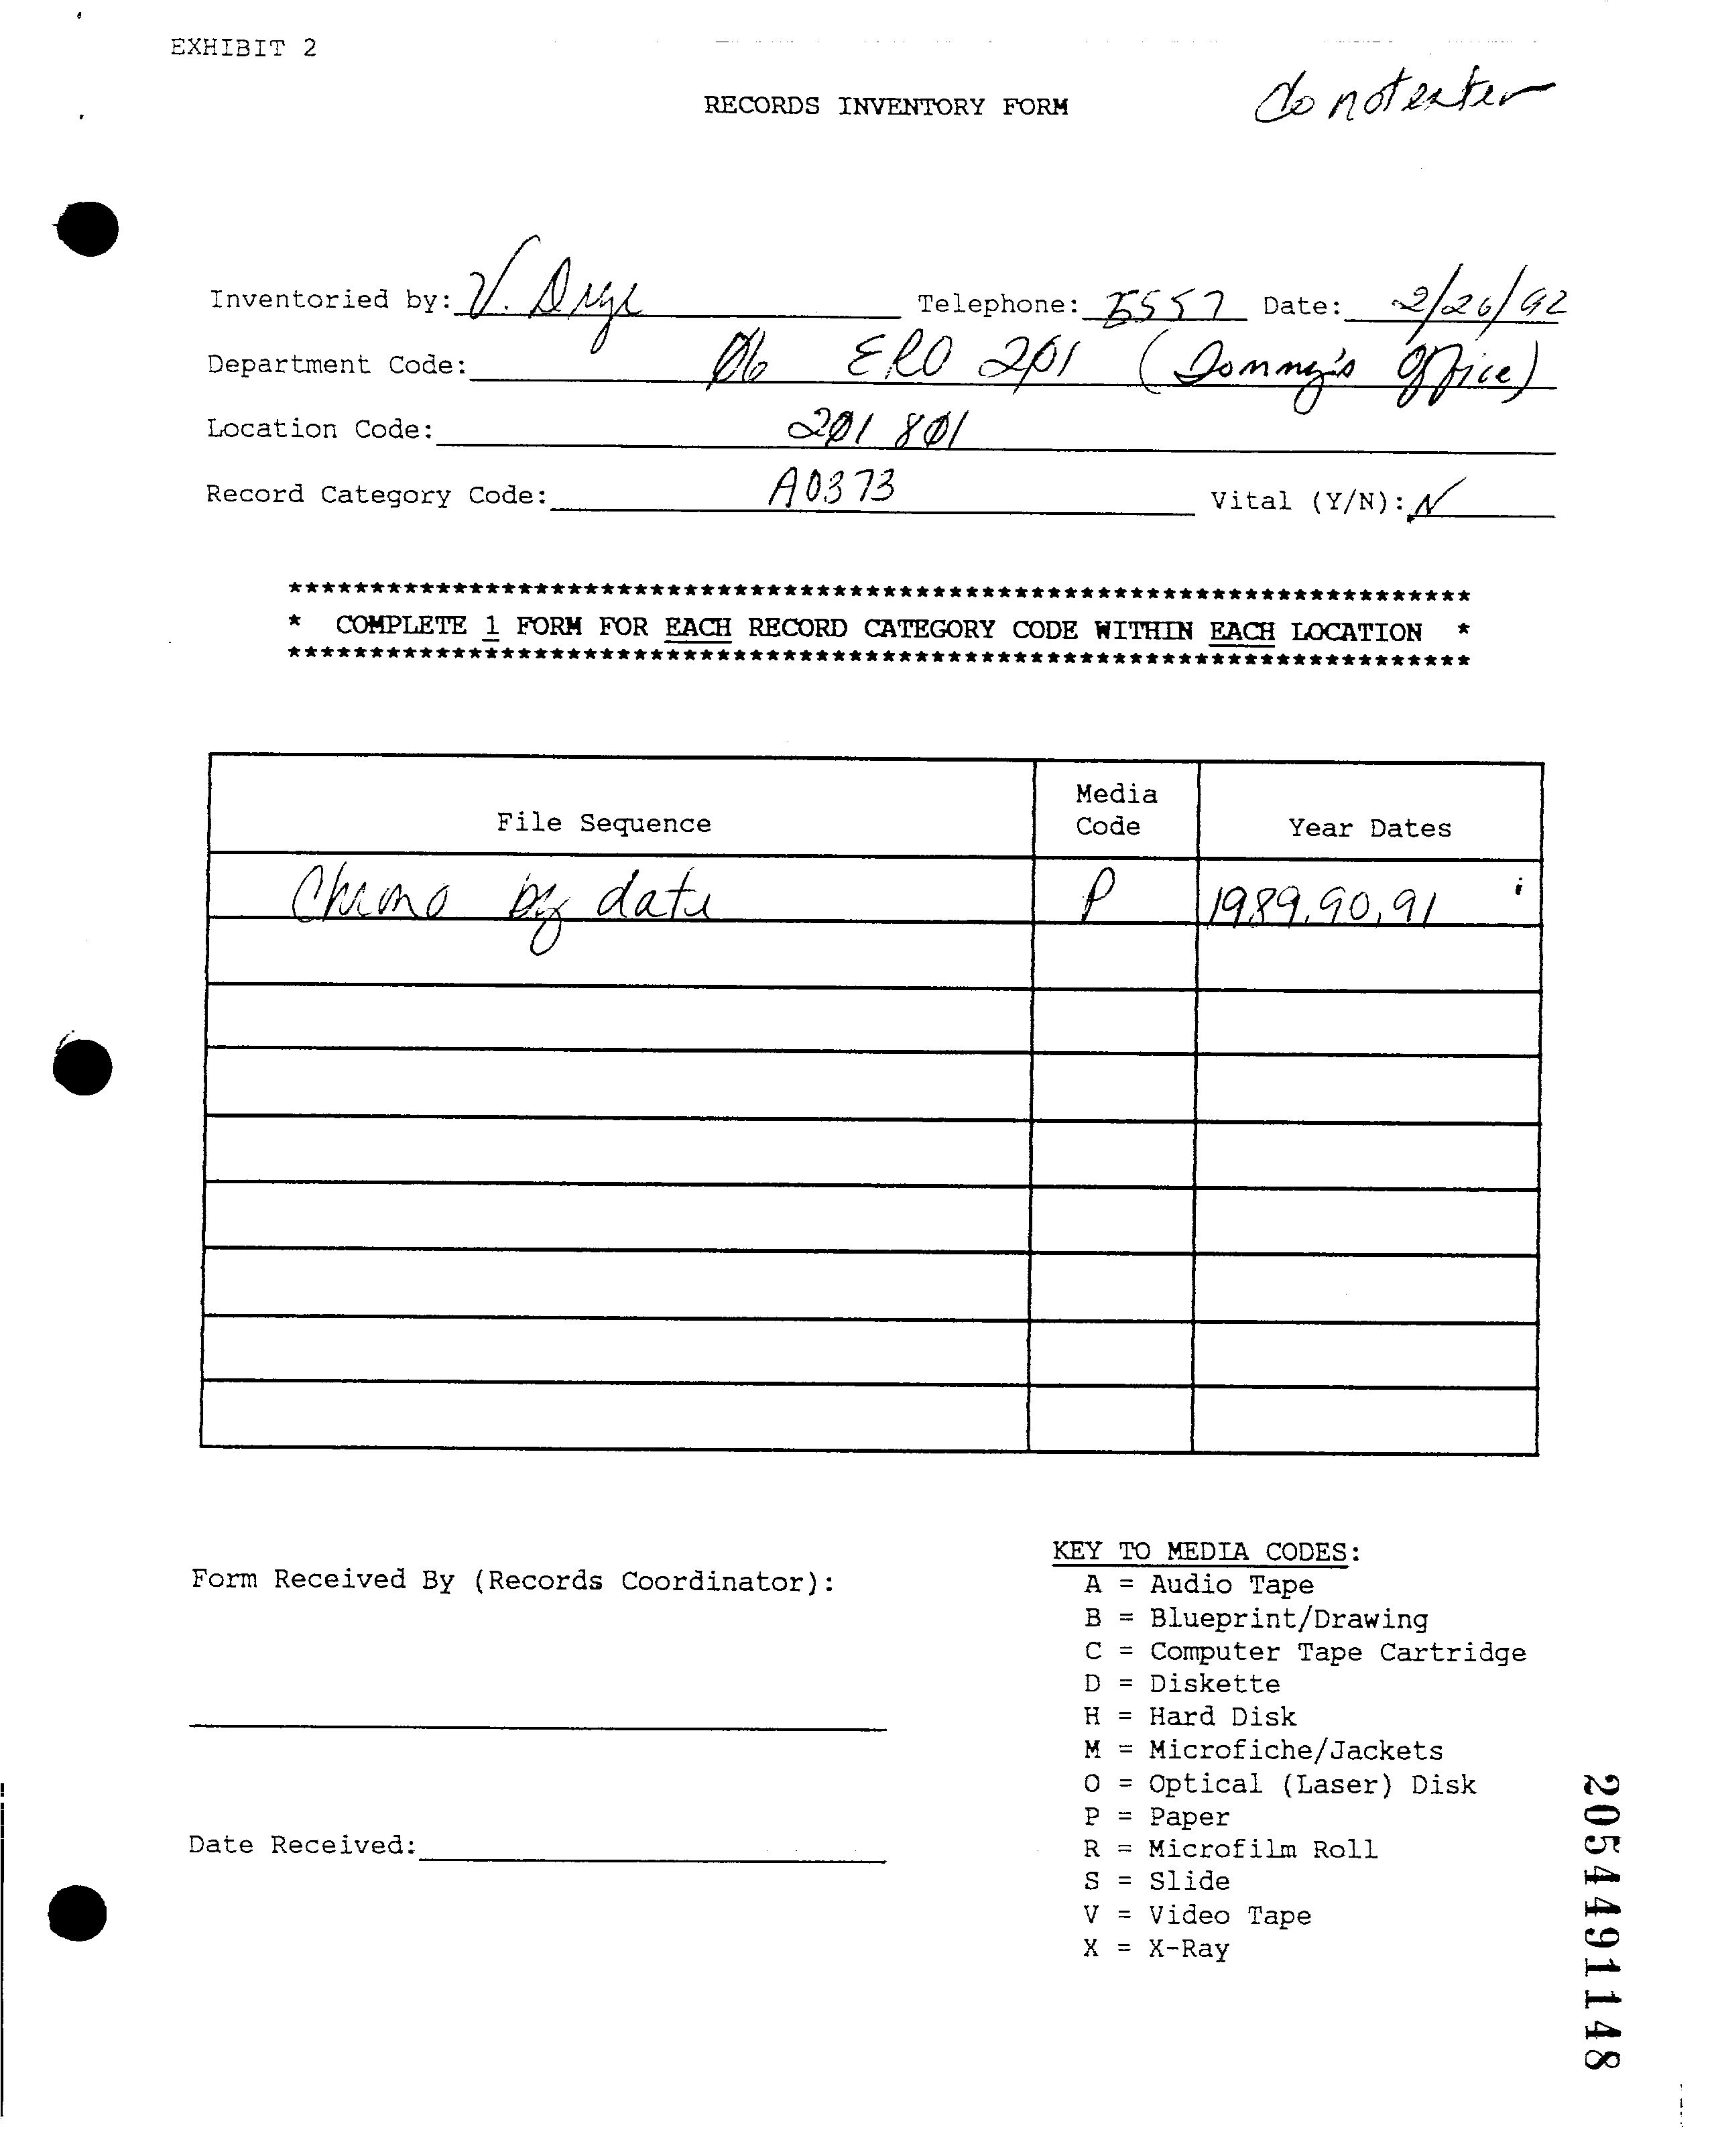 EXHIBIT 2
do not enter
RECORDS INVENTORY FORM
Inventoried by: V. Telephone: 5557 Date: 2/26/92
Department Code: 06 ERO 201 ( Office)
Location Code: 201 801
Record Category Code: A0373 Vital (Y/N): N
************************************************************************
* COMPLETE 1 FORM FOR EACH RECORD CATEGORY CODE WITHIN EACH LOCATION *
************************************************************************
File Sequence Media Code Year Dates
Chrono by date P 1989,90,91
Form Received By (Records Coordinator):
Date Received:
KEY TO MEDIA CODES:
A = Audio Tape
B = Blueprint/Drawing
C = Computer Tape Cartridge
D = Diskette
H = Hard Disk
M = Microfiche/Jackets
O = Optical (Laser) Disk
P = Paper
R = Microfilm Roll
S = Slide
V = Video Tape
X = X-Ray
2054491148